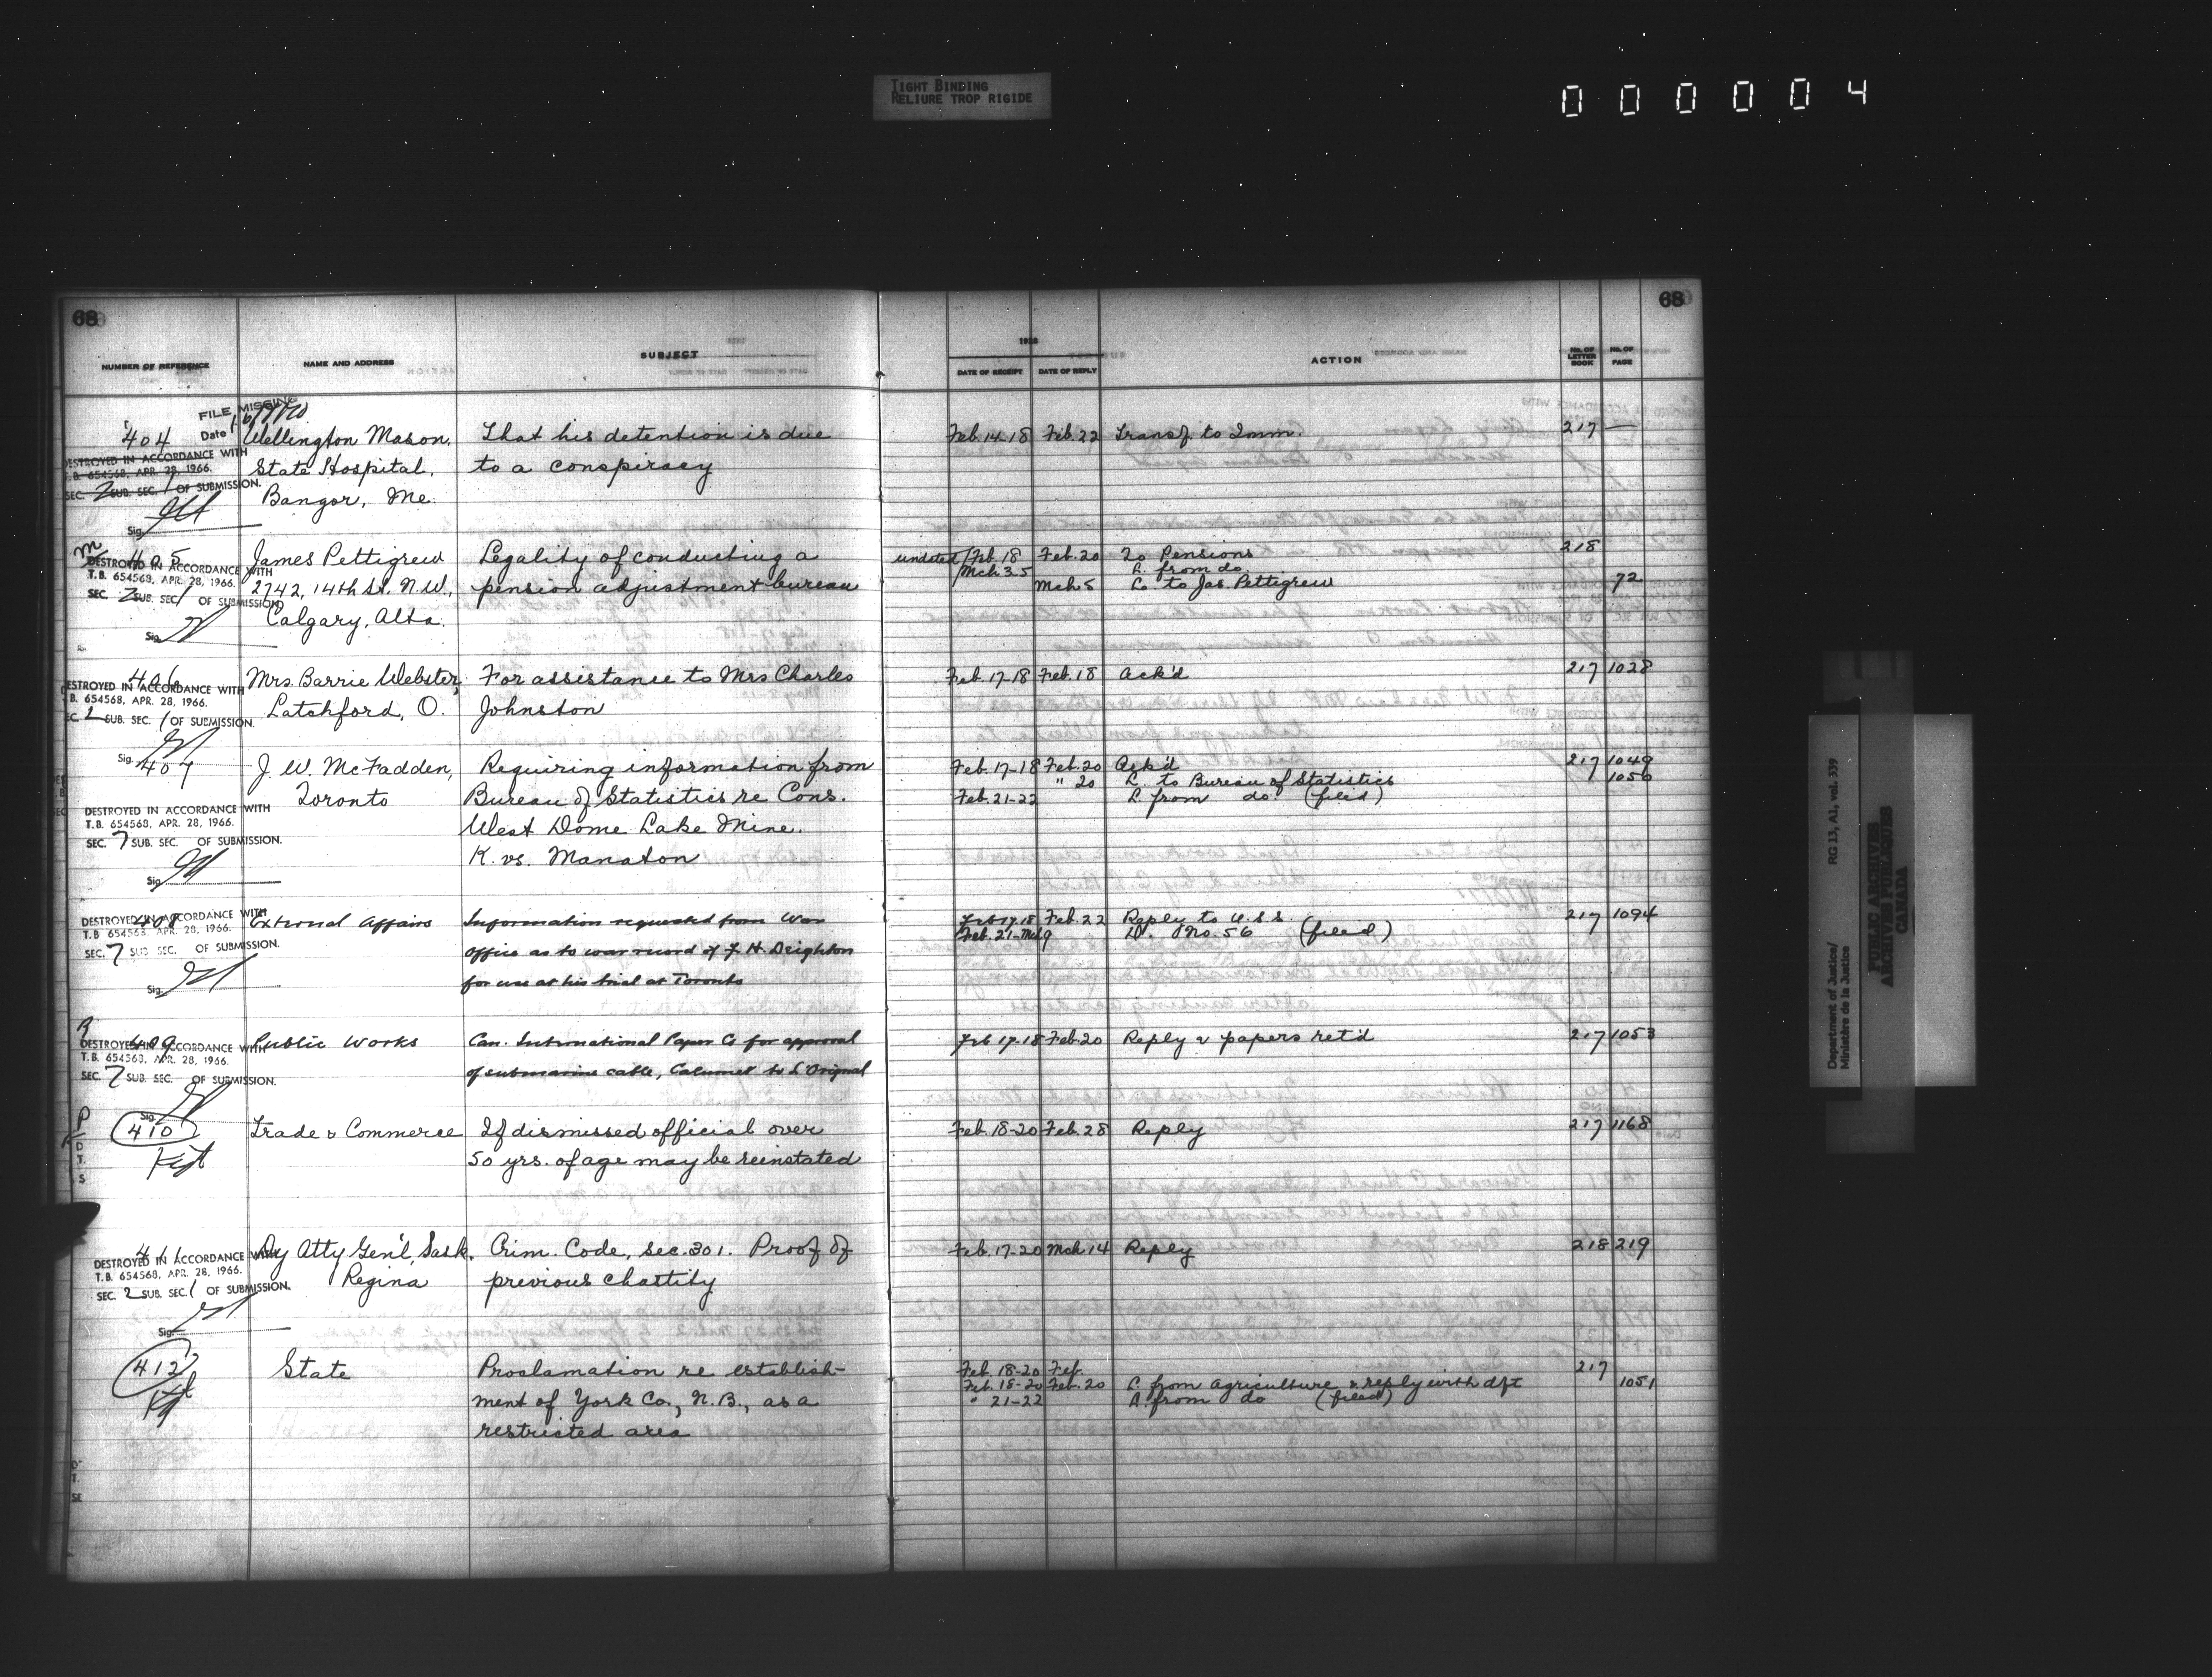 TIGHT BINDING
RELIURE TROP RIGIDE
000004
68
68
NUMBER OF REFERENCE NAME AND ADDRESS SUBJECT
DATE OF RECEIPT DATE OF REPLY ACTION No. OF LETTER BOOK No. OF PAGE
FILE MISSING
Date
404 Wellington Mason, That his detention is due Feb. 14-18 Feb. 22 Transf. to Imm. 217 —
DESTROYED IN ACCORDANCE WITH
T.B. 654568, APR. 28, 1966.
SEC. 2 SUB. SEC. 1 OF SUBMISSION.
Sig.
State Hospital, to a conspiracy
Bangor, Me.
M
405 James Pettigrew Legality of conducting a undated/Feb. 18 Feb. 20 To Pensions 218
Mch. 3-5 L. from do.
DESTROYED IN ACCORDANCE WITH
T.B. 654568, APR. 28, 1966.
SEC. 2 SUB. SEC. 1 OF SUBMISSION.
Sig.
2742, 14th St. N.W., pension adjustment bureau Mch 5 L. to Jas. Pettigrew 72
Calgary, Alta.
406 Mrs. Barrie Webster, For assistance to Mrs Charles Feb. 17-18 Feb. 18 Ack'd 217 1028
DESTROYED IN ACCORDANCE WITH
B. 654568, APR. 28, 1966.
SUB. SEC. 1 OF SUBMISSION.
Sig.
Latchford, O. Johnston
407 J. W. McFadden, Requiring information from Feb. 17-18 Feb. 20 Ack'd 217 1049
" 20 L. to Bureau of Statistics 1050
Toronto Bureau of Statistics re Cons. Feb. 21-22 L. from do. (filed)
DESTROYED IN ACCORDANCE WITH
T.B. 654568, APR. 28, 1966.
SEC. 7 SUB. SEC. OF SUBMISSION.
Sig.
West Dome Lake Mine.
K. vs. Manaton
408 External Affairs Information requested from War Feb 17-18 Feb. 22 Reply to U.S.S. 217 1094
DESTROYED IN ACCORDANCE WITH
T.B. 654568, APR. 28, 1966.
SEC. 7 SUB SEC. OF SUBMISSION.
Sig.
Feb. 21-Mch 9 D. No. 56 (filed)
office as to war record of J. H. Deighton
for use at his trial at Toronto
R
409 Public Works Can. International Paper Co for approval Feb 17-18 Feb. 20 Reply & papers ret'd 217 1053
DESTROYED IN ACCORDANCE WITH
T.B. 654568, APR. 28, 1966.
SEC. 7 SUB. SEC. OF SUBMISSION.
Sig.
of submarine cable, Calumet to L'Orignal
P
410 Trade & Commerce If dismissed official over Feb. 18-20 Feb. 28 Reply 217 1168
Kept
50 yrs. of age may be reinstated
411 Dy Atty Gen'l, Sask. Crim. Code, sec. 301. Proof of Feb. 17-20 Mch 14 Reply 218 219
DESTROYED IN ACCORDANCE WITH
T.B. 654568, APR. 28, 1966.
SEC. 2 SUB. SEC. 1 OF SUBMISSION.
Sig.
Regina previous chastity
412 State Proclamation re establish- Feb. 18-20 Feb. 217
Kept
Feb. 18-20 Feb. 20 L. from Agriculture & reply with dft 1051
ment of York Co., N.B., as a " 21-22 A. from do (filed)
restricted area
Department of Justice/ RG 13, A1, vol. 339
Ministère de la Justice
PUBLIC ARCHIVES
ARCHIVES PUBLIQUES
CANADA